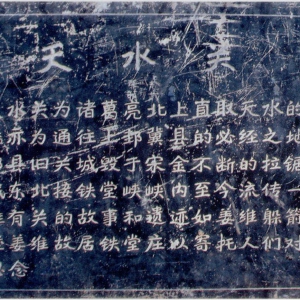 天水关
水关为诸葛亮北上直取天水的
亦为通往王都冀县的必经之地
县旧关城毁于宋金不断的拉锯
东北接铁堂峡峡内至今流传
有关的故事和遗迹如姜维躲箭
姜维故居铁堂庄以寄托人们对
念